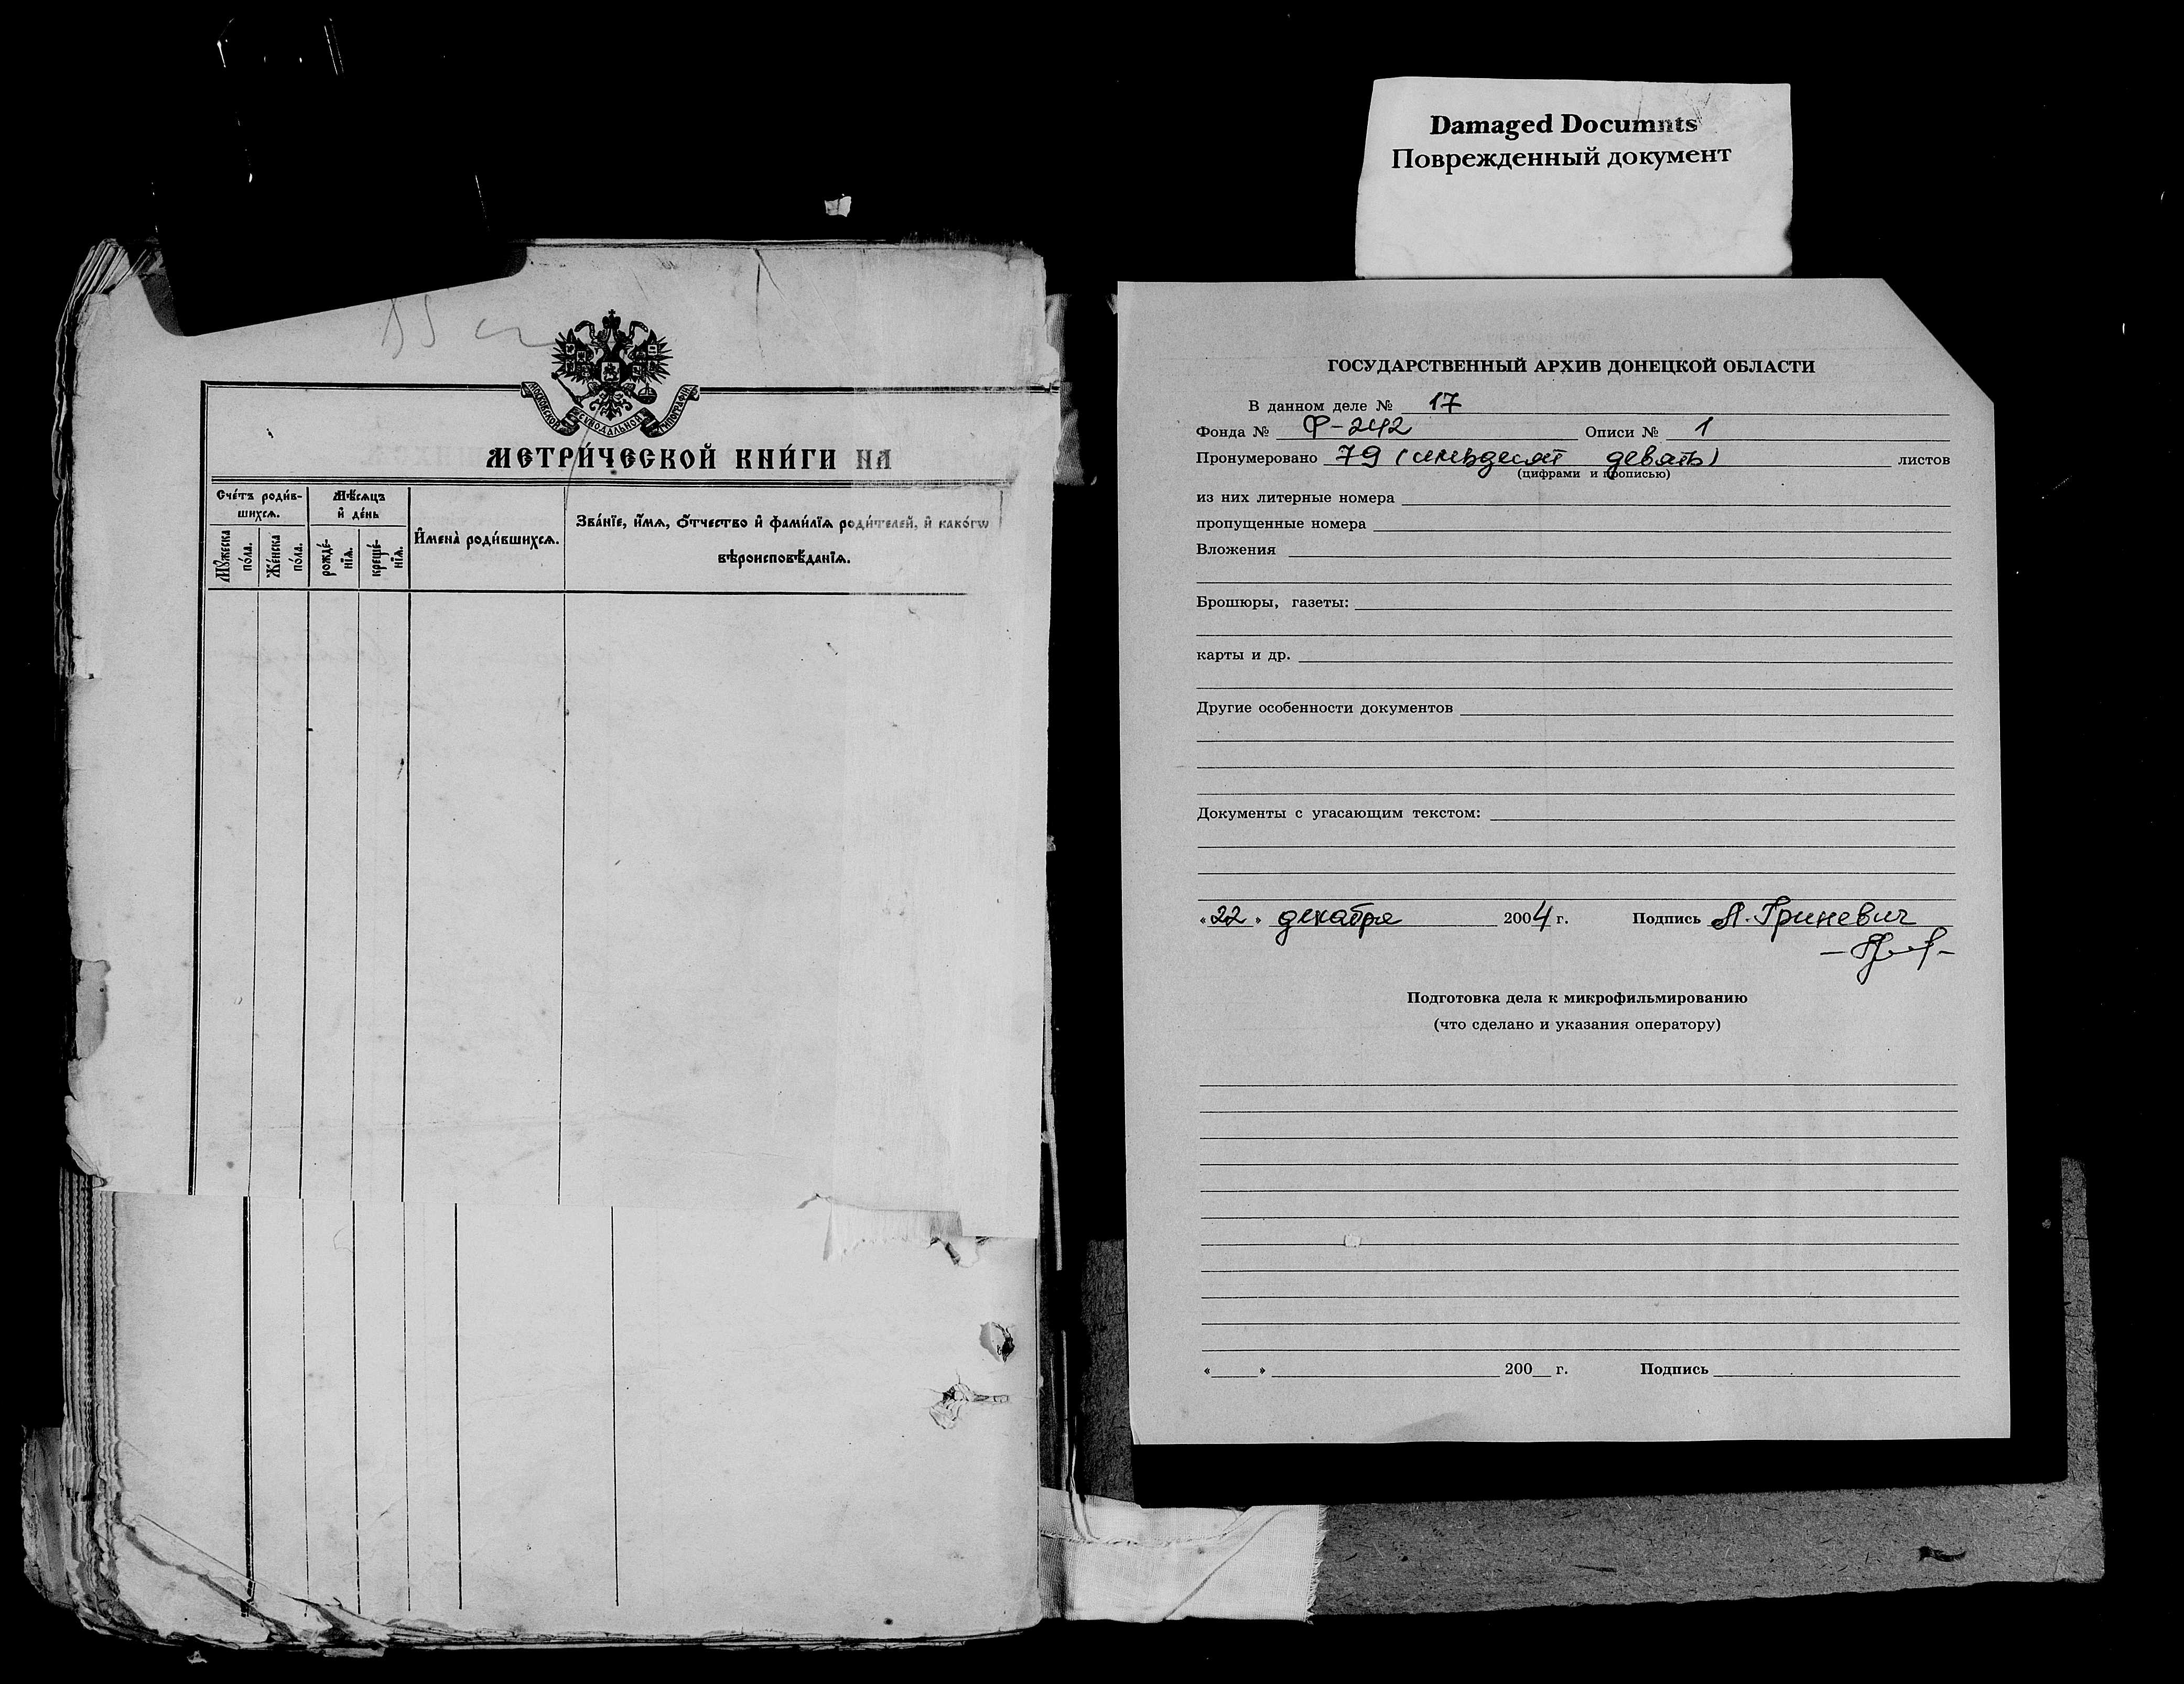 Damaged Documnts
Поврежденный документ
МОСКОВСКОЙ СѴНОДАЛЬНОЙ ТИПОГРАФІИ
МЕТРИ́ЧЕСКОЙ КНИ́ГИ НА
Сче́тъ роди́в-
шихсѧ.
Мѣ́сѧцъ
и҆ де́нь
И҆мена̀ роди́вшихсѧ.
Зва́нїе, и҆́мѧ, ѻ҆́тчество и҆ фами́лїѧ роди́телей, и҆ како́гѡ
вѣроисповѣ́данїѧ.
Мꙋ́жеска
по́ла.
Же́нска
по́ла.
рожде́-
нїѧ.
креще́-
нїѧ.
ГОСУДАРСТВЕННЫЙ АРХИВ ДОНЕЦКОЙ ОБЛАСТИ
В данном деле № 17
Фонда № Ф-242 Описи № 1
Пронумеровано 79 (семьдесят девять) листов
(цифрами и прописью)
из них литерные номера
пропущенные номера
Вложения
Брошюры, газеты:
карты и др.
Другие особенности документов
Документы с угасающим текстом:
«22» декабря 2004 г. Подпись Л. Гриневич
Подготовка дела к микрофильмированию
(что сделано и указания оператору)
« » 200 г. Подпись